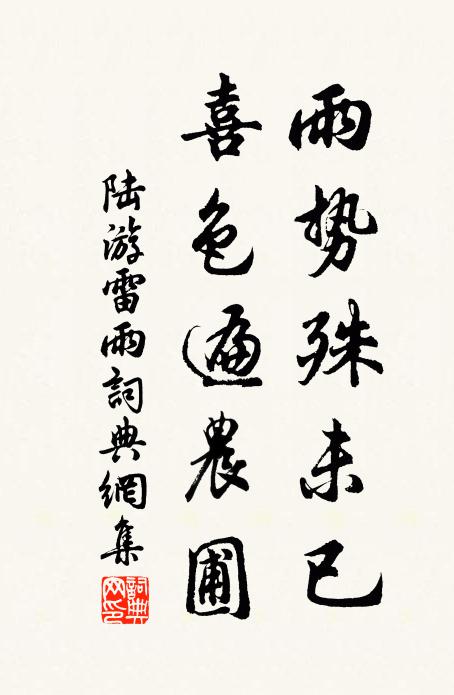 雨勢殊未已
喜色遍農圃
陆游雷雨詞典網集
詞典网印